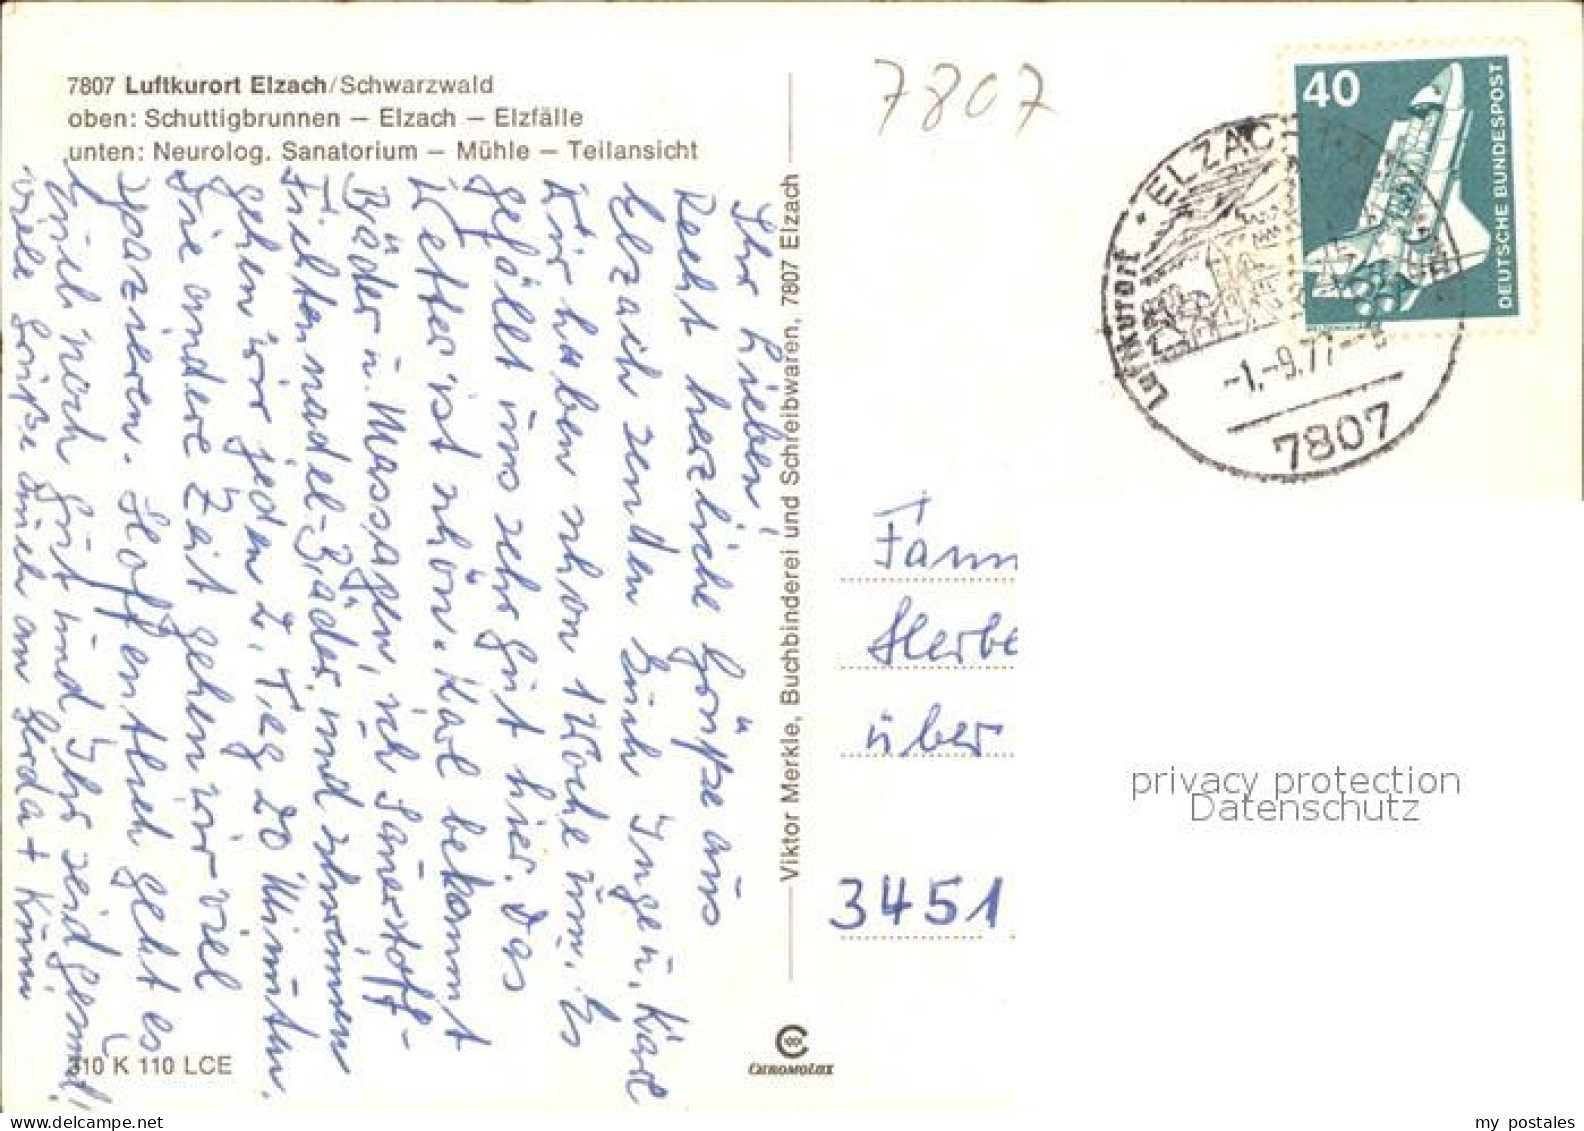 7807 Luftkurort Elzach/Schwarzwald
oben: Schuttigbrunnen – Elzach – Elzfälle
unten: Neurolog. Sanatorium – Mühle – Teilansicht
Ihr Lieben!
Recht herzliche Grüße aus
Elzach senden Euch Inge u. Karl
Wir haben schon 1 Woche um. Es
gefällt uns sehr gut hier. Das
Wetter ist schön. Karl bekommt
Bäder u. Massagen, ich Sauerstoff-
Fichtennadel-Bäder und schwimmen
gehen wir jeden 2. Tag 20 Minuten.
Die andere Zeit gehen wir viel
spazieren. Hoffentlich geht es
Euch noch gut und Ihr seid gesund!
Viele Grüße auch an Gerda +
310 K 110 LCE
Viktor Merkle, Buchbinderei und Schreibwaren, 7807 Elzach
CHROMOLUX
7807
40
DEUTSCHE BUNDESPOST
Luftkurort • ELZACH
-1.-9.77-
7807
Fam
Herbe
über
3451
privacy protection
Datenschutz
www.delcampe.net
my postales